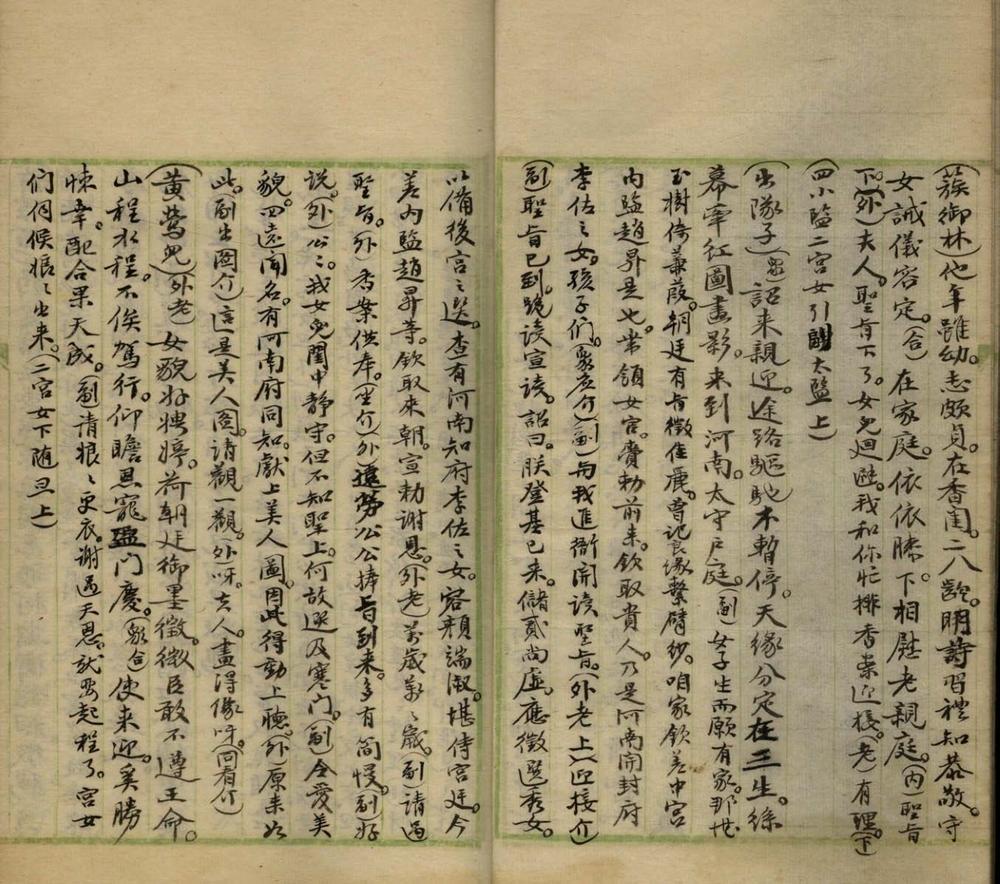 (蔟御林)他年雖幼。志頗貞。在香閨。二八齡。明詩習禮知恭敬。守
女誡儀容定。(合)在家庭。依依膝下相慰老親庭。(內)聖旨
下。(外)夫人。聖旨下了。女兒迴避。我和你忙排香案迎接。(老)有理(下)
四小監二宮女引太監上)
(出隊子)(眾)詔來親迎。途路驅馳不暫停。天緣分定在三生。絲
幕牽紅圖畫影。來到河南。太守戶庭。(副)女子生而願有家。那堪
玉樹倚蒹葭。朝廷有旨徵佳麗。曾記良緣繫臂紗。咱家欽差中宮
內監趙昇是也。帶領女官。賫勅前來。欽取貴人。乃是河南開封府
李佐之女。孩子們。(眾應介)(副)與我進衙開讀聖旨。(外老上)(迎接介)
(副)聖旨已到。跪讀宣讀。詔曰。朕登基已來。儲貳尚虛。應徵選秀女。
以備後宮之選。查有河南知府李佐之女。容顏端淑。堪侍宮廷。今
差內監趙昇等。欽取來朝。宣勅謝恩。(外老)萬歲萬々歲。(副)請過
聖旨。(外)香案供奉。(坐介)(外)遠勞公公捧旨到來。多有簡慢。(副)好
說。(外)公公。我女兒閨中靜守。但不知聖上。何故選及寒門。(副)令愛美
貌。四遠聞名。有河南府同知。獻上美人圖。因此得動上聽。(外)原來如
此。(副出圖介)這是美人圖。請觀一觀。(外)呀。夫人。畫得像呀。(同看介)
(黃鶯兒)(外老)女貌好娉婷。荷朝廷御墨徵。微臣敢不遵王命。
山程水程。不俟駕行。仰瞻恩寵盈门慶。(眾合)使來迎。奚勝
悚幸。配合果天成。(副)請娘々更衣。謝過天恩。就要起程了。宮女
們伺候娘々出來。(二宮女下随旦上)